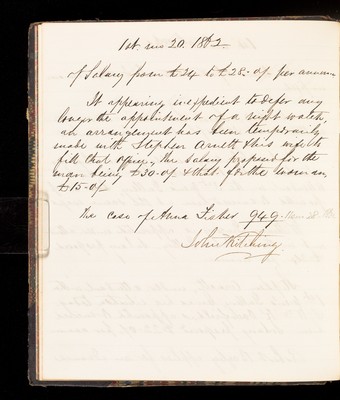 1st mo 20. 1862
of Salary from £24 to £28:- of. per annum
It appearing inexpedient to defer any
longer the appointment of a night watch,
an arrangement has been temporarily
made with Stephen Arnett & his wife to
fill that office, the Salary proposed for the
man being £30-of & that for the woman
£15-of
The case of Anna Fisher 949.
John Kitching